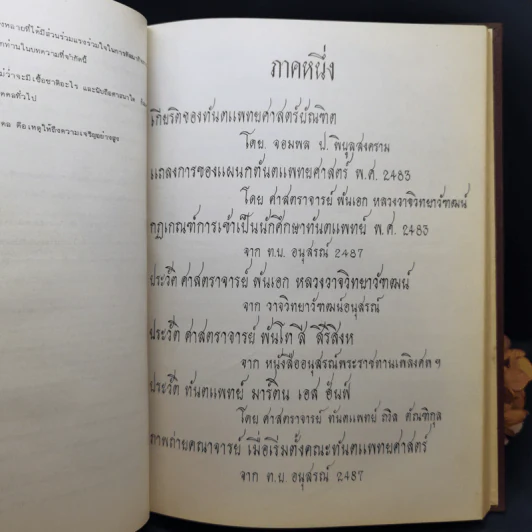 งหลายที่ได้มีส่วนร่วมแรงร่วมใจในการ
กท่านในบทความที่จำกัดนี้
ม่ว่าจะมีเชื้อชาติอะไร และนับถือศาสนาใด
คคลทั่วไป
คล คือเหตุให้ถึงความเจริญอย่างสูง
ภาคหนึ่ง
เกียรติของทันตแพทยศาสตร์บัณฑิต
โดย. จอมพล ป. พิบูลสงคราม
แถลงการของแผนกทันตแพทยศาสตร์ พ.ศ. 2483
โดย ศาสตราจารย์ พันเอก หลวงวาจวิทยาวัฑฒน์
กฎเกณฑ์การเข้าเป็นนักศึกษาทันตแพทย์ พ.ศ. 2483
จาก ท.พ. อนุสรณ์ 2487
ประวัติ ศาสตราจารย์ พันเอก หลวงวาจวิทยาวัฑฒน์
จาก วาจวิทยาวัฑฒน์อนุสรณ์
ประวัติ ศาสตราจารย์ พันโท สี สิริสิงห
จาก หนังสืออนุสรณ์พระราชทานเพลิงศพฯ
ประวัติ ทันตแพทย์ มาร์ติน เอส ฮันฟ์
โดย ศาสตราจารย์ ทันตแพทย์ ถวิล ตัณฑิกุล
ภาพถ่ายคณาจารย์ เมื่อเริ่มตั้งคณะทันตแพทยศาสตร์
จาก ท.พ. อนุสรณ์ 2487